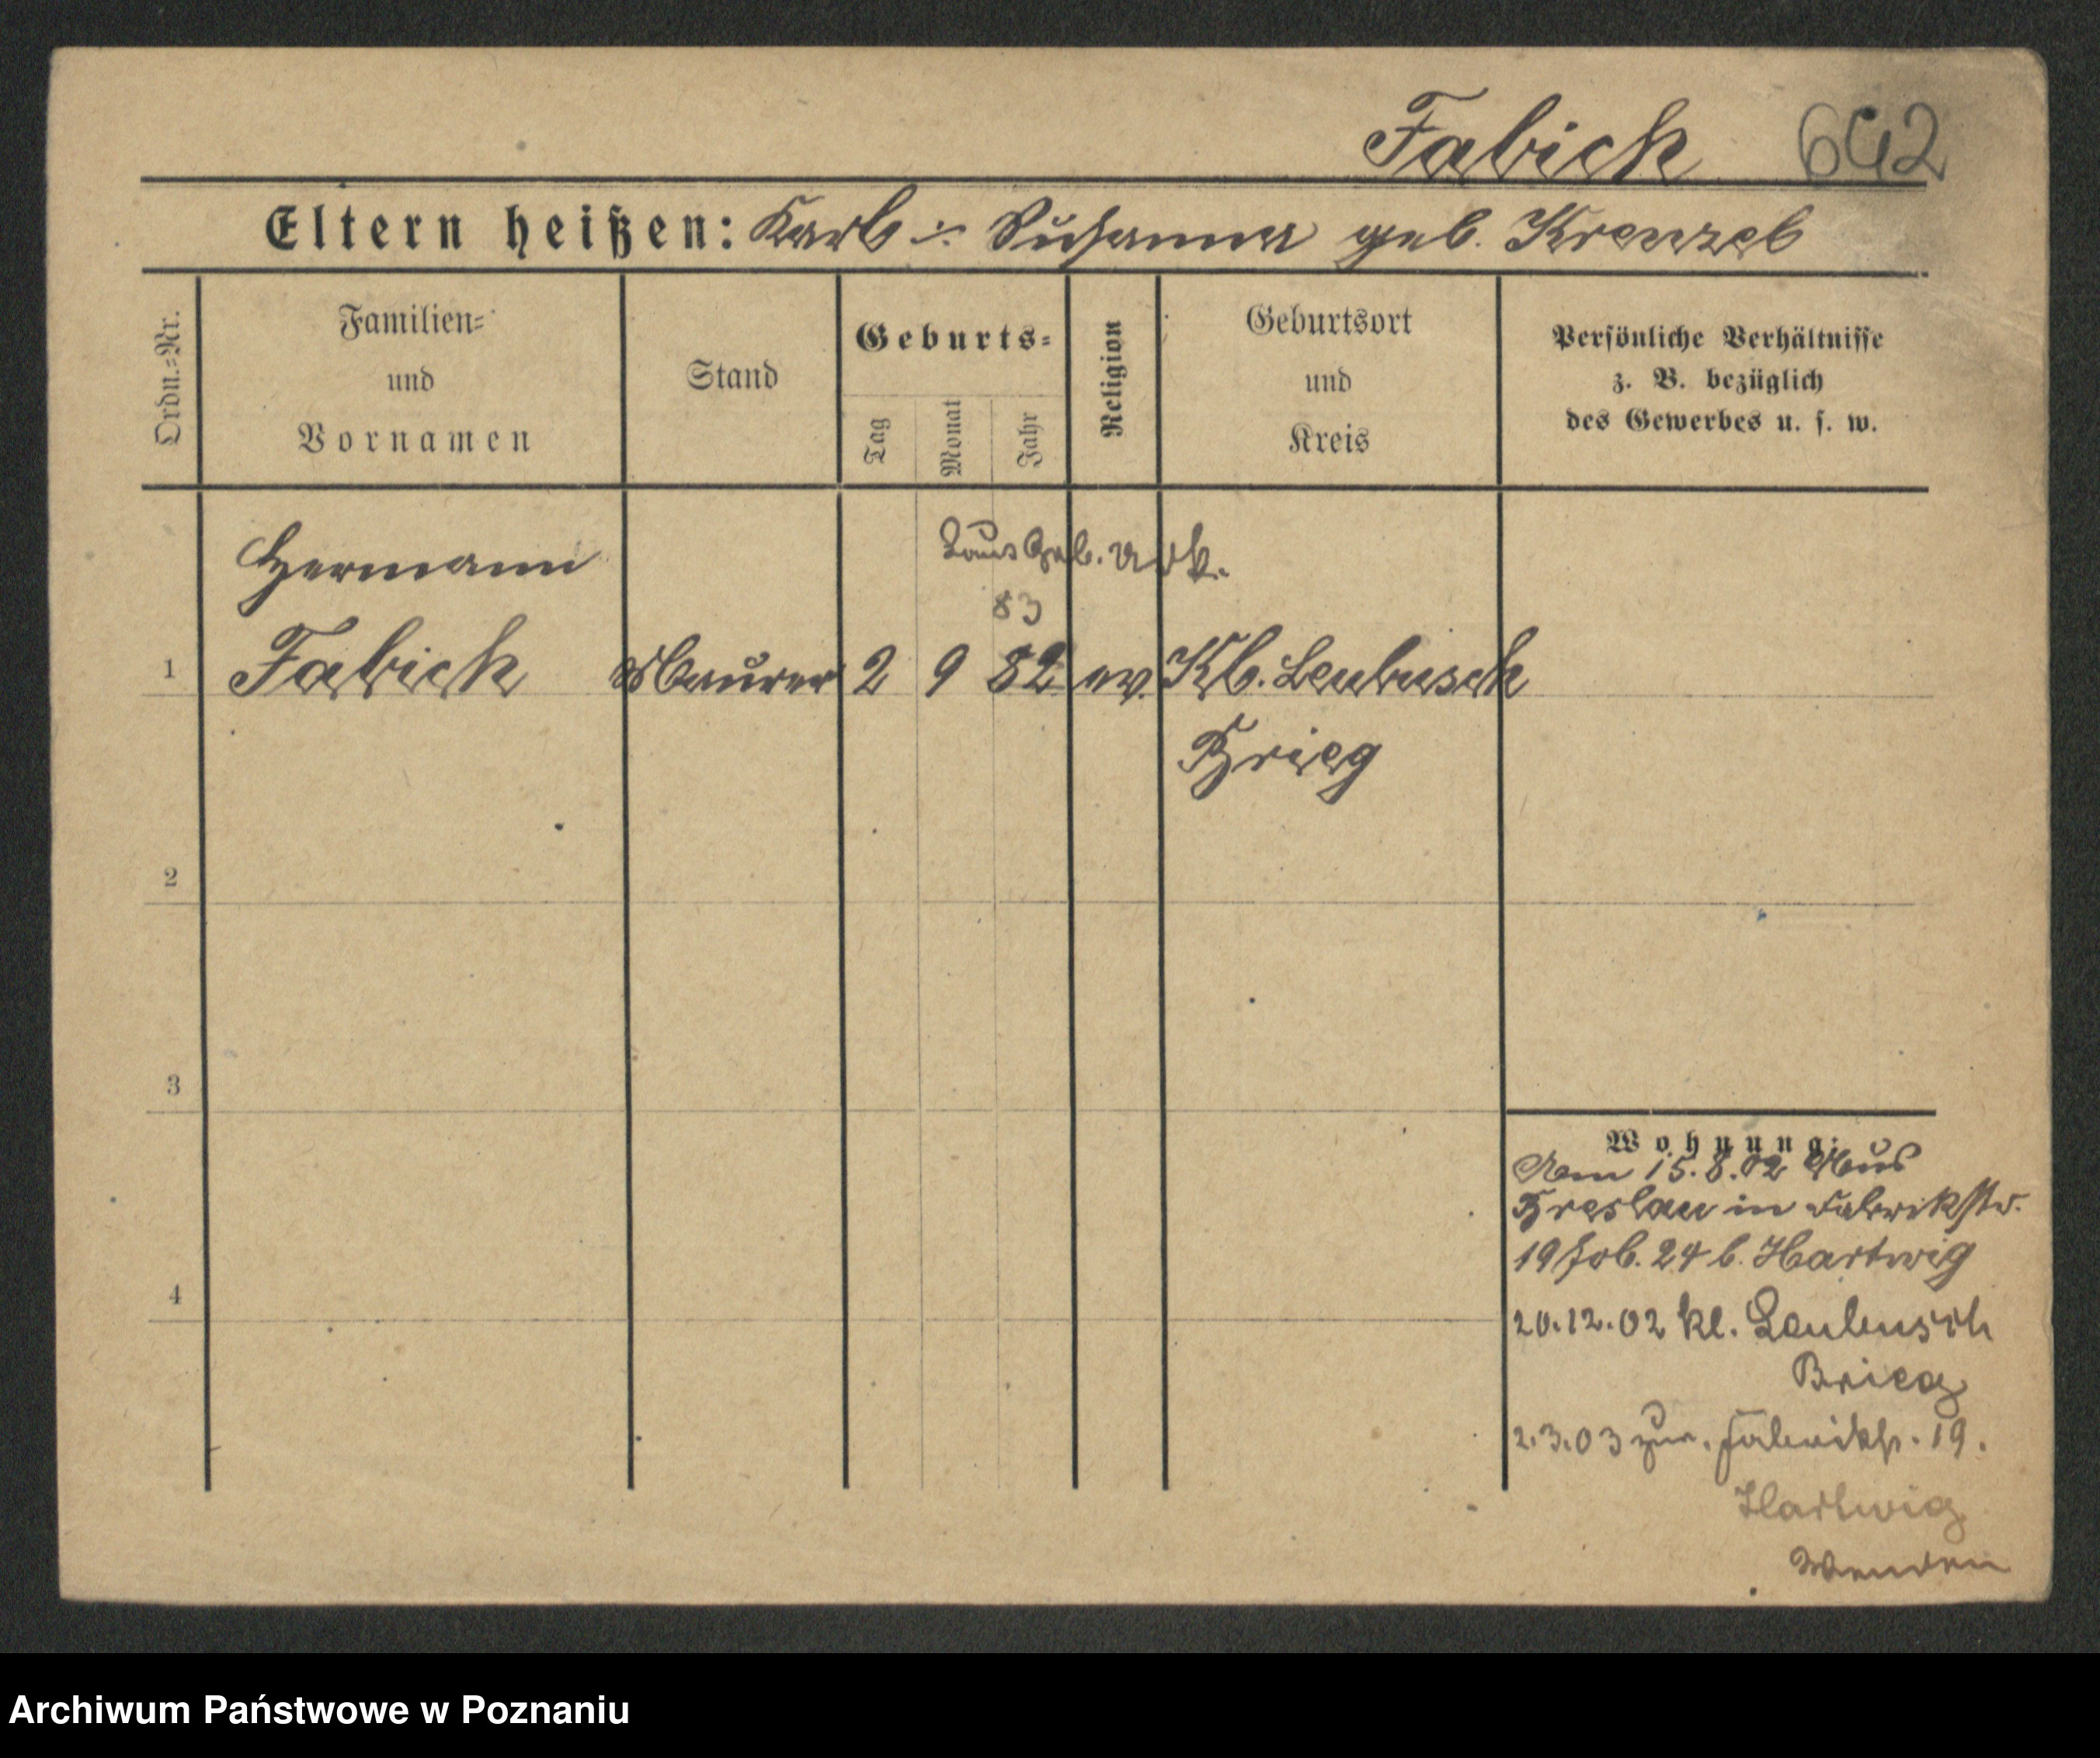 Fabich 642
Eltern heißen: Karl u. Susanna geb. Krenzel
Ordn.=Nr.
Familien=
und
Vornamen
Stand
Geburts=
Tag
Monat
Jahr
Religion
Geburtsort
und
Kreis
Persönliche Verhältnisse
z. B. bezüglich
des Gewerbes u. s. w.
Laut Geb. Urk.
83
Hermann
1 Fabich Maurer 2 9 82 ev. Kl. Leubusch
Brieg
2
3
4
Wohnung:
Am 15.8.02 Aus
Breslau in Fabrikstr.
19 b. Hartwig
20.12.02 Kl. Leubusch
Brieg
2.3.03 zur. Fabrikstr. 19.
Hartwig
Archiwum Państwowe w Poznaniu